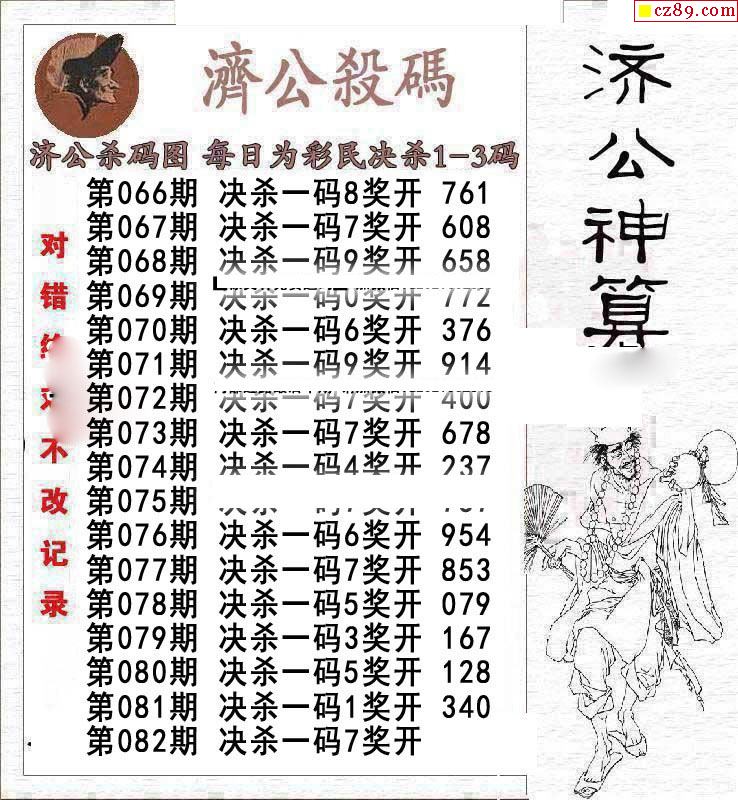 cz89.com
濟公殺碼
济公杀码图 每日为彩民决杀1-3码
第066期 决杀一码8奖开 761
第067期 决杀一码7奖开 608
第068期 决杀一码9奖开 658
第069期 决杀一码0奖开 772
第070期 决杀一码6奖开 376
第071期 决杀一码9奖开 914
第072期 决杀一码7奖开 400
第073期 决杀一码7奖开 678
第074期 决杀一码4奖开 237
第075期
第076期 决杀一码6奖开 954
第077期 决杀一码7奖开 853
第078期 决杀一码5奖开 079
第079期 决杀一码3奖开 167
第080期 决杀一码5奖开 128
第081期 决杀一码1奖开 340
第082期 决杀一码7奖开
对错 不改记录
济公神算